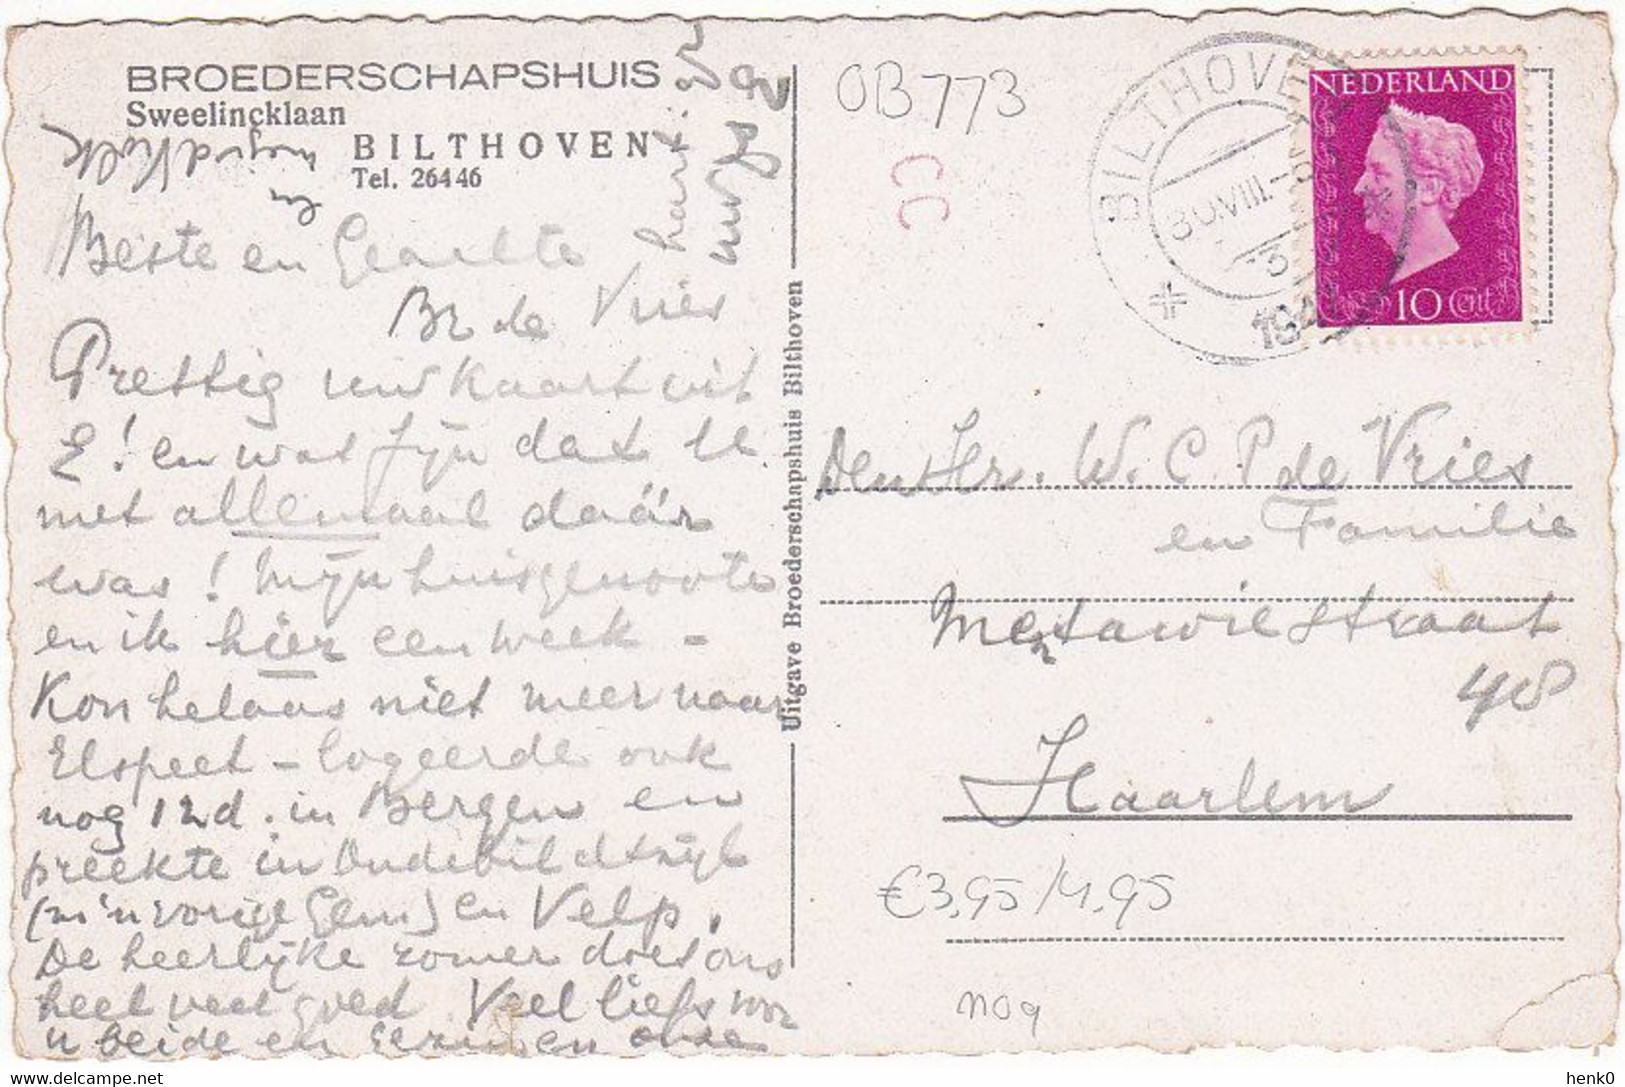 BROEDERSCHAPSHUIS
Sweelincklaan
BILTHOVEN
Tel. 26446
Beste en Geachte
Br de Vries
Prettig uw kaart uit
E! en wat fijn dat u
met allemaal daár
was! Mijn huisgenoote
en ik hier een week -
Kon helaas niet meer naar
Elspeet - logeerde ook
nog 12 d. in Bergen en
preekte in Oudebildtzijl
(m'n vorige Gem) en Velp.
De heerlijke zomer doet ons
heel veel goed Veel liefs voor
u beide en Gezin en onze
hart.
Uitgave Broederschapshuis Bilthoven
OB 773
CC
BILTHOVEN
30.VIII.
1947
NEDERLAND
10 Cent
Den Hr. W. C. P. de Vries
en Familie
straat
48
Haarlem
€3,95/4,95
nog
delcampe.net
henk0